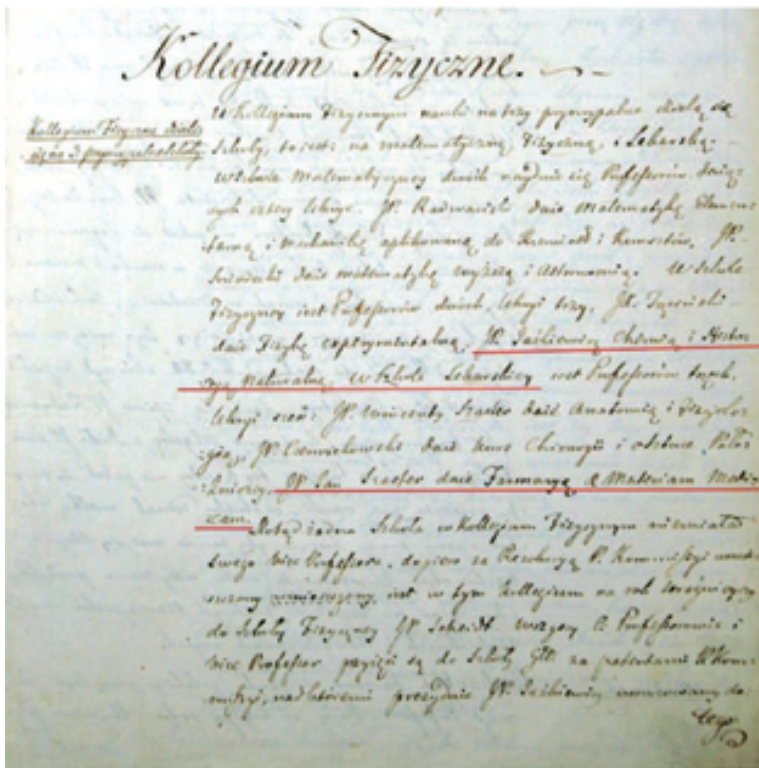 Kollegium Fizyczne.
Kollegium Fizyczne dzieli
się na 3. pryncypalne szkoły
W Kollegium Fizycznym nauki na trzy pryncypalne dzielą się
szkoły, to iest: na matematyczną, Fizyczną, i Lekarską.
W szkole Matematyczney dwóch znayduie się Professorów daią-
cych cztery lekcye. JP. Radwański daie Matematykę Elemen-
tarną i Mechanikę aplikowaną do Rzemiosł i Kunsztów, JP.
Śniadecki daie matematykę wyższą i Astronomią. W szkole
Fizyczney iest Professorów dwóch, lekcyi trzy. JP.
daie Fizykę experymentalną, JP. Jaśkiewicz Chimią i Histo-
ryą Naturalną. W Szkole Lekarskiey iest Professorów trzech,
lekcyi sześć: JP. Wincenty Szaster daie Anatomią i Fizyolo-
gią, JP. Czerwiakowski daie Kurs Chirurgii i
JP. Jan Szaster daie Farmacyą & Materiam Medi-
cam. Dotąd żadna Szkoła w Kollegium Fizycznym nie miała
swego Vice Professora, dopiero za Rezolucyą P. Kommissyi
umieszczony iest w tym Kollegium na rok
do Szkoły Fizyczney JP. Scheidt wszyscy Professorowie i
Vice Professor przyięci są do Szkoły Gł. za patentami P. Kom-
missyi, nad któremi prezyduie JP. Jaśkiewicz do
tego